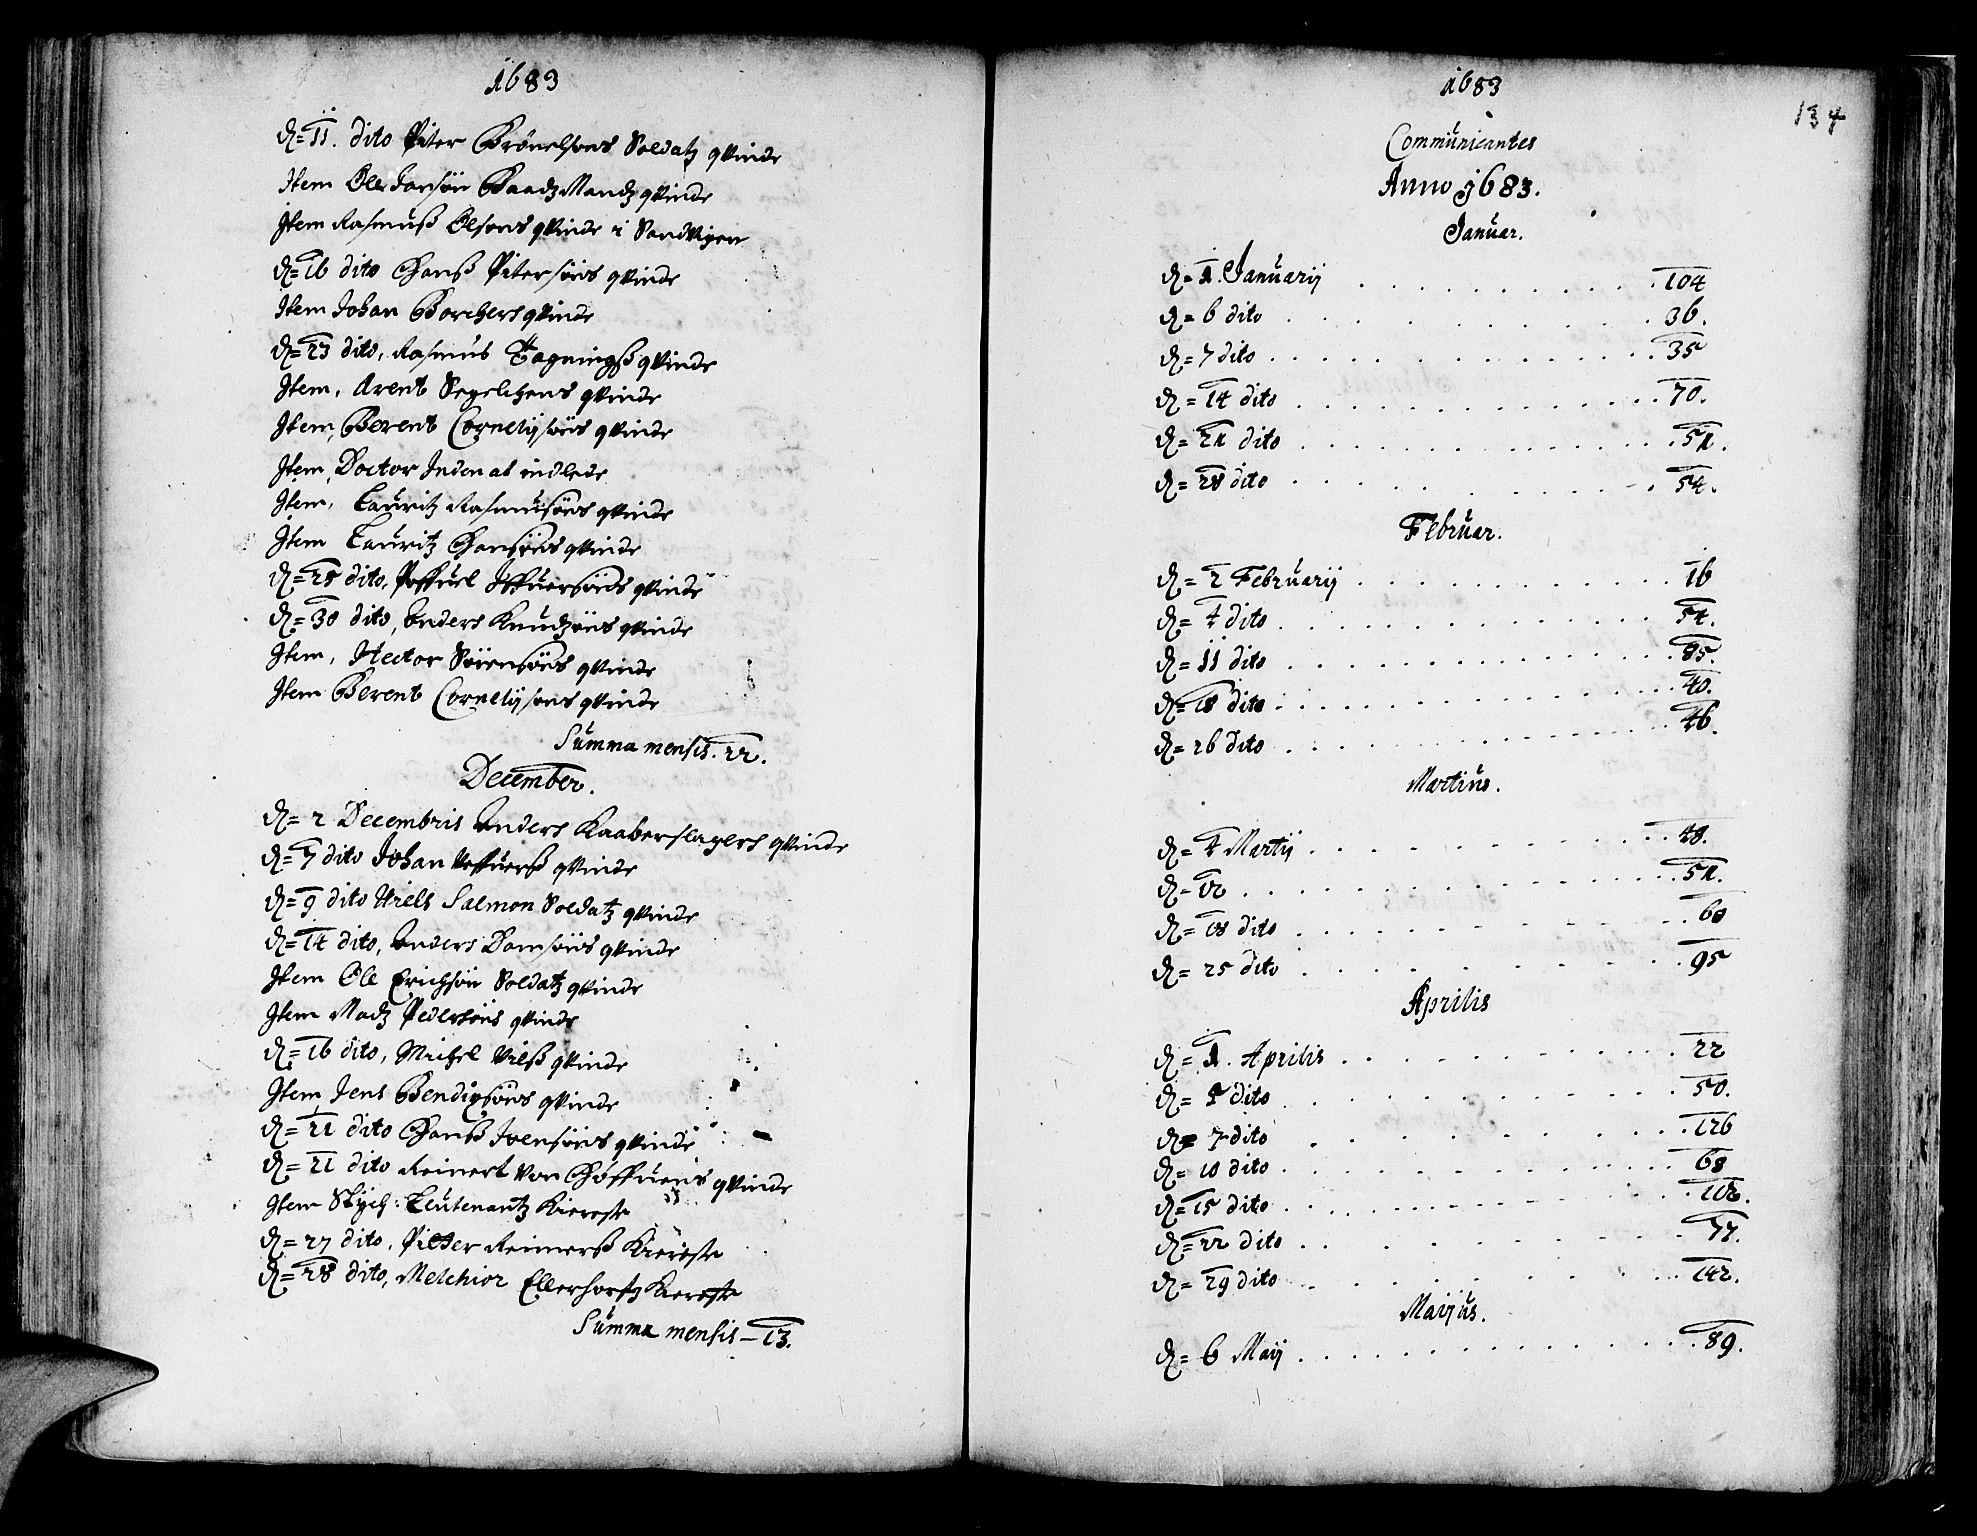 1683
d= 11. dito Piter Brönelsöns Soldatz qvinde
Item Ole Jonsön Baadzmandz qvinde
Item Rasmuß Olsöns qvinde i Sandvigen
d= 16 dito Hanß Pitersöns qvinde
Item Johan Borchers qvinde
d= 23 dito, Rasmus qvinde
Item, Arent Segelchens qvinde
Item, Berent Cornelijsöns qvinde
Item, Doctor Inden at indlede
Item, Lauritz Rasmusöns qvinde
Item Lauritz Hansöns qvinde
d= 25 dito, qvinde
d= 30 dito, Anders Knudzöns qvinde
Item, Hector Sörensöns qvinde
Item Berent Cornelijsöns qvinde
Summa mensis. 22.
December.
d= 2 Decembris Anders Kaaberslagers qvinde
d= 7 dito Johan qvinde
d= 9 dito Niels Salmon Soldatz qvinde
d= 14 dito, Anders qvinde
Item Ole Erichsön Soldatz qvinde
Item Madz Pedersöns qvinde
d= 16 dito, Michel Nilß qvinde
Item, Jens Bendixsöns qvinde
d= 21 dito Hanß Ivensöns qvinde
d= 21 dito Reinert von qvinde
Item Leutenantz Kiereste
d= 27 dito, Pitter Reimerß Kiereste
d= 28 dito, Melchior Ellerhorstz Kiereste
Summa mensis – 13.
1683
134
Communicantes
Anno 1683.
Januar.
d= 1. Januarij . . . 104
d= 6 dito . . . 36.
d= 7 dito . . . 35
d= 14 dito . . . 70.
d= 21 dito . . . 51.
d= 28 dito . . . 54.
Februar.
d= 2 Februarij . . . 16
d= 4 dito . . . 54.
d= 11 dito . . . 85.
d= 18 dito . . . 40.
d= 26 dito . . . 46.
Martius.
d= 4 Martij . . . 48.
d= 12 . . . 51.
d= 18 dito . . . 60
d= 25 dito . . . 95
Aprilis
d= 1. Aprilis . . . 22
d= 5 dito . . . 50.
d= 7 dito . . . 126
d= 10 dito . . . 68
d= 15 dito . . . 102.
d= 22 dito . . . 77.
d= 29 dito . . . 142.
Maijus.
d= 6 Maij . . . 89.